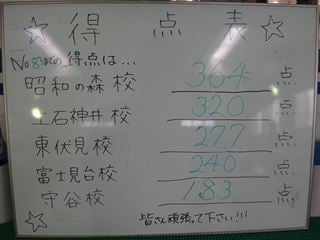 ☆ 得 点 表 ☆
No.83までの得点は…
昭和の森校 364 点
上石神井校 320 点
東伏見校 277 点
富士見台校 240 点
守谷校 183 点
☆ 皆さん頑張って下さい!!!